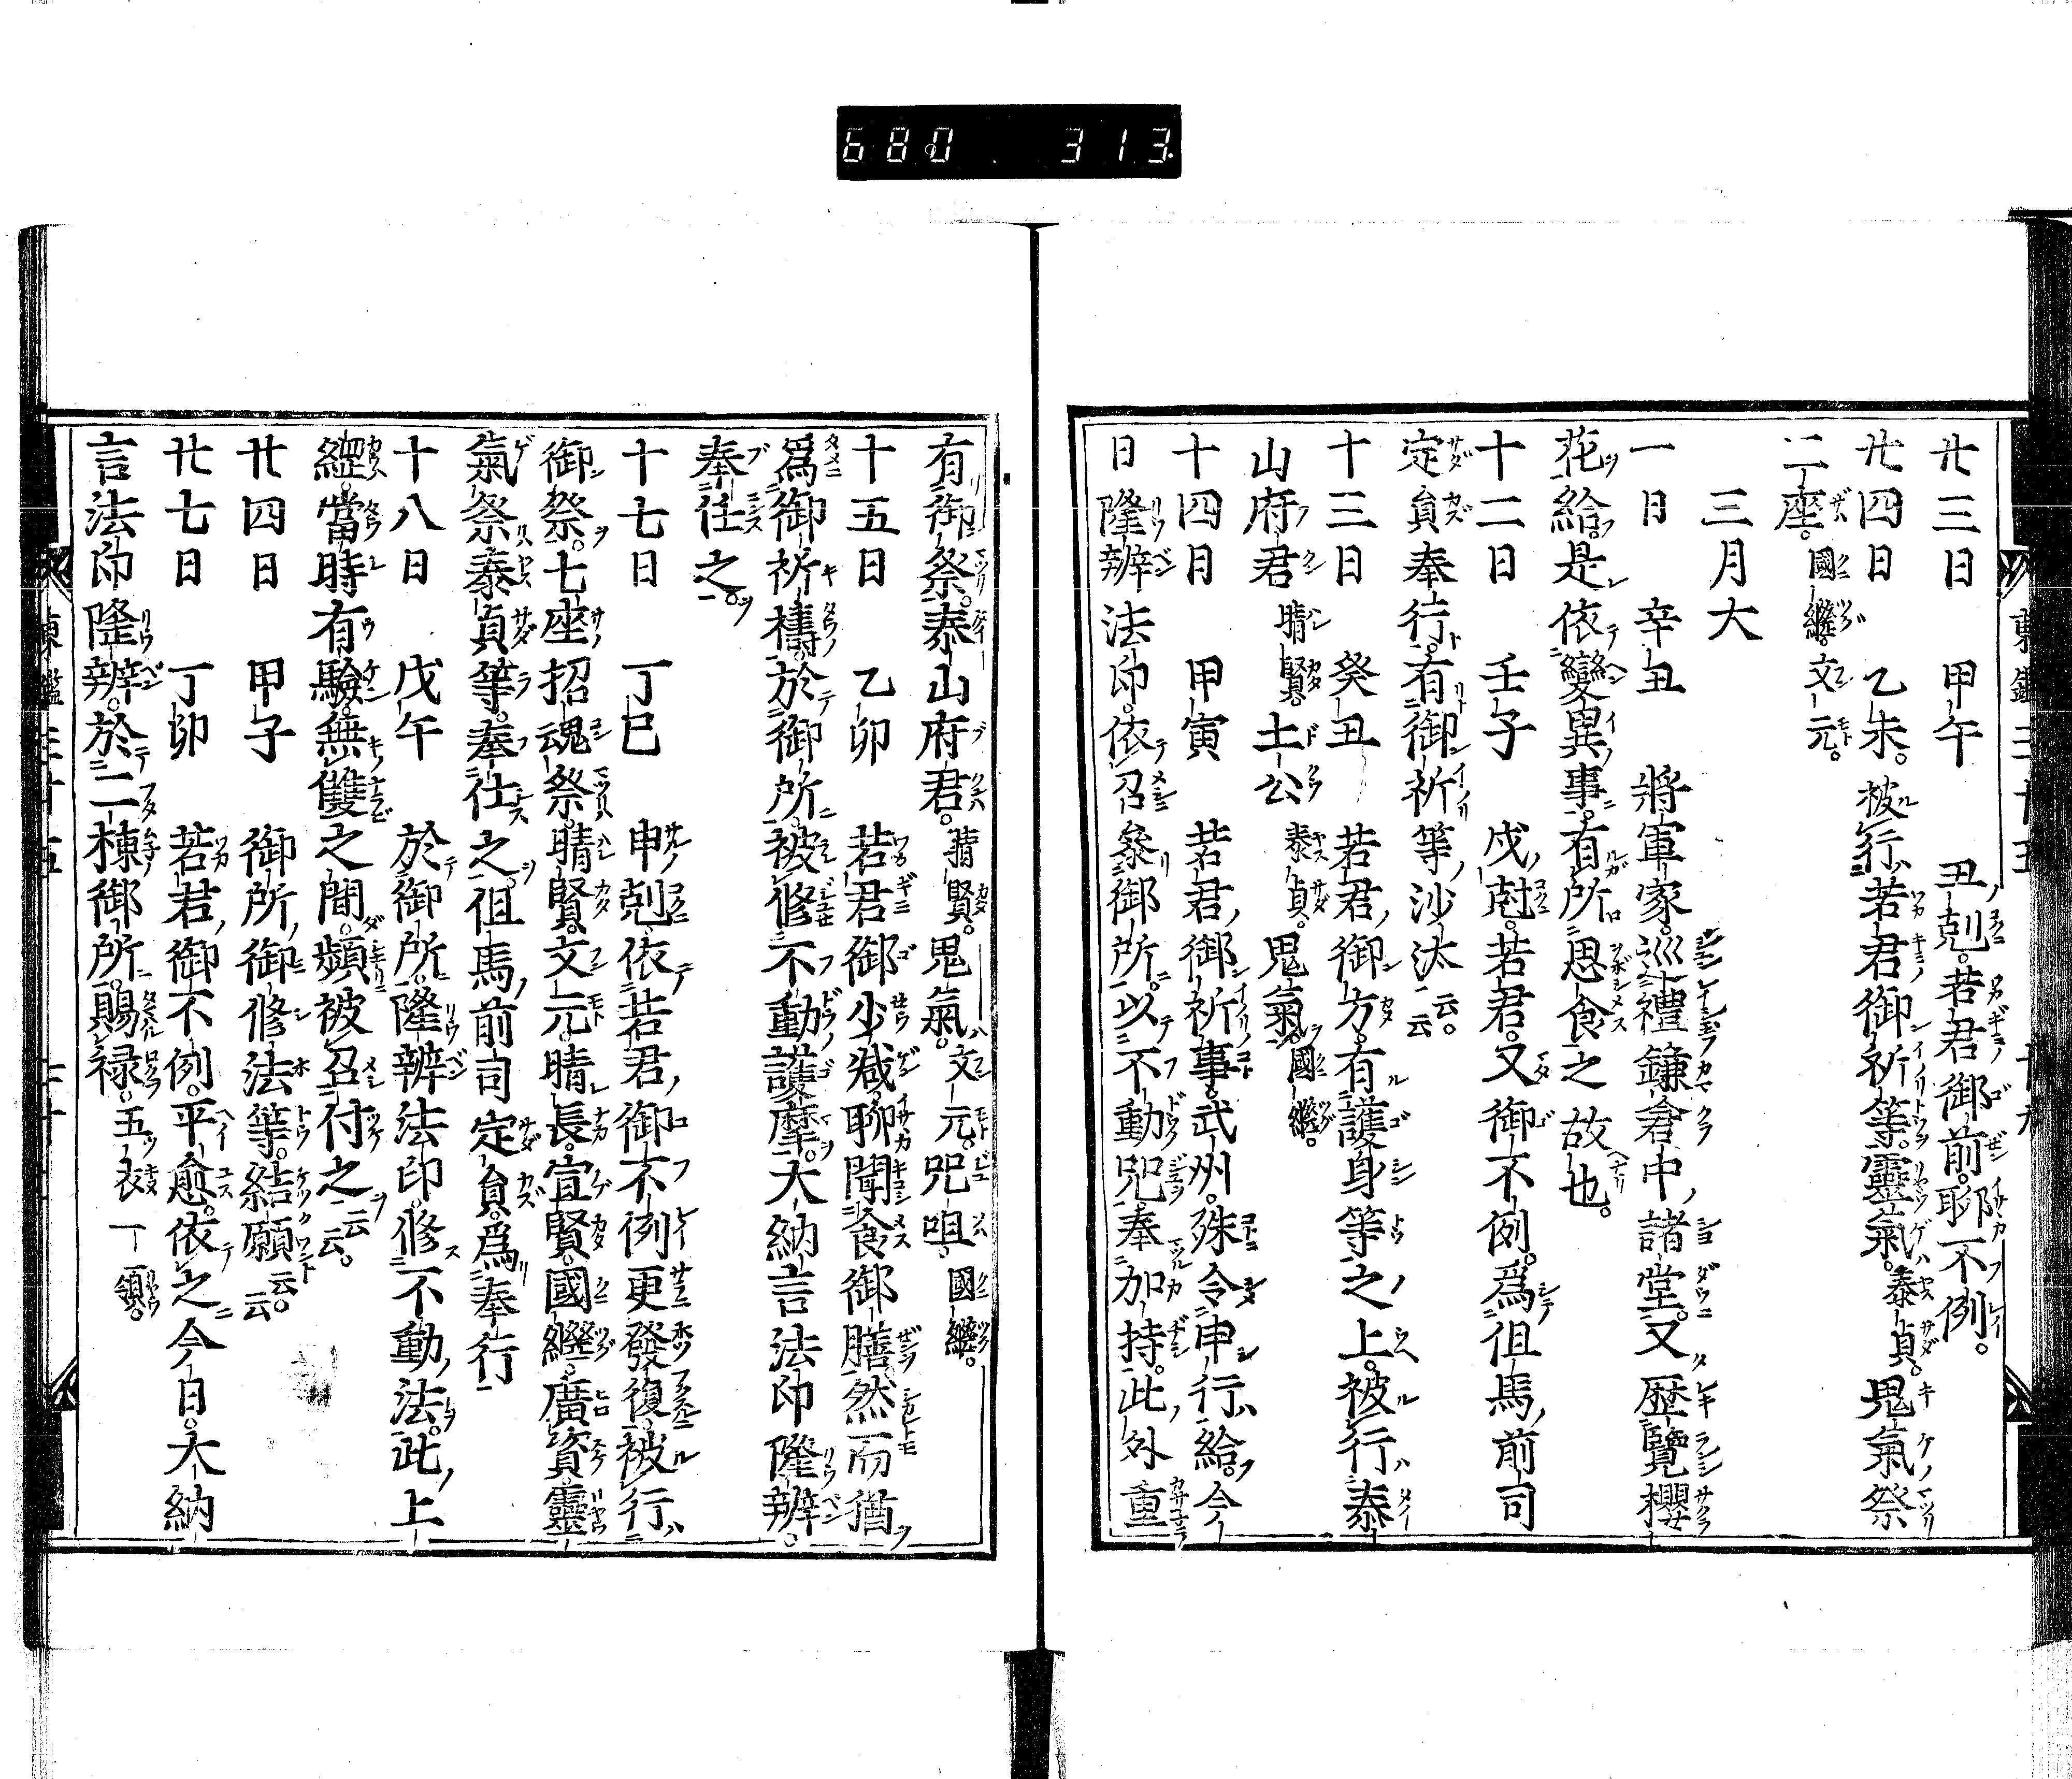 680 313
廿三日 甲午 丑剋。若君御前。聊不例。
廿四日 乙未。被行若君御祈等。靈氣。泰貞。鬼氣祭
二座。國繼。文元。
三月大
一日 辛丑 將軍家。巡禮鎌倉中諸堂。又歷覽櫻
花給。是依變異事。有所思食之故也。
十二日 壬子 戌尅。若君。又御不例。爲但馬前司
定員奉行。有御祈等沙汰云云。
十三日 癸丑 若君御方。有護身等之上。被行泰
山府君晴賢。土公泰貞。鬼氣。國繼。
十四日 甲寅 若君御祈事。武州。殊令申行給。今
日隆辨法印。依召參御所。以不動咒奉加持。此外重
有御祭。泰山府君。晴賢。鬼氣。文元。咒咀。國繼。
十五日 乙卯 若君御少減。聊聞食御膳。然而猶
爲御祈禱。於御所。被修不動護摩。大納言法印隆辨。
奉仕之。
十七日 丁巳 申剋。依若君御不例更發復。被行
御祭。七座招魂祭。晴賢。文元。晴長。宣賢。國繼。廣資。靈
氣祭泰貞等。奉仕之。但馬前司定員。爲奉行
十八日 戊午 於御所。隆辨法印。修不動法。此上
縡。當時有驗。無雙之間。頻被召付之云云。
廿四日 甲子 御所御修法等。結願云云。
廿七日 丁卯 若君御不例。平愈。依之今日。大納
言法印隆辨。於二棟御所。賜祿。五衣一領。